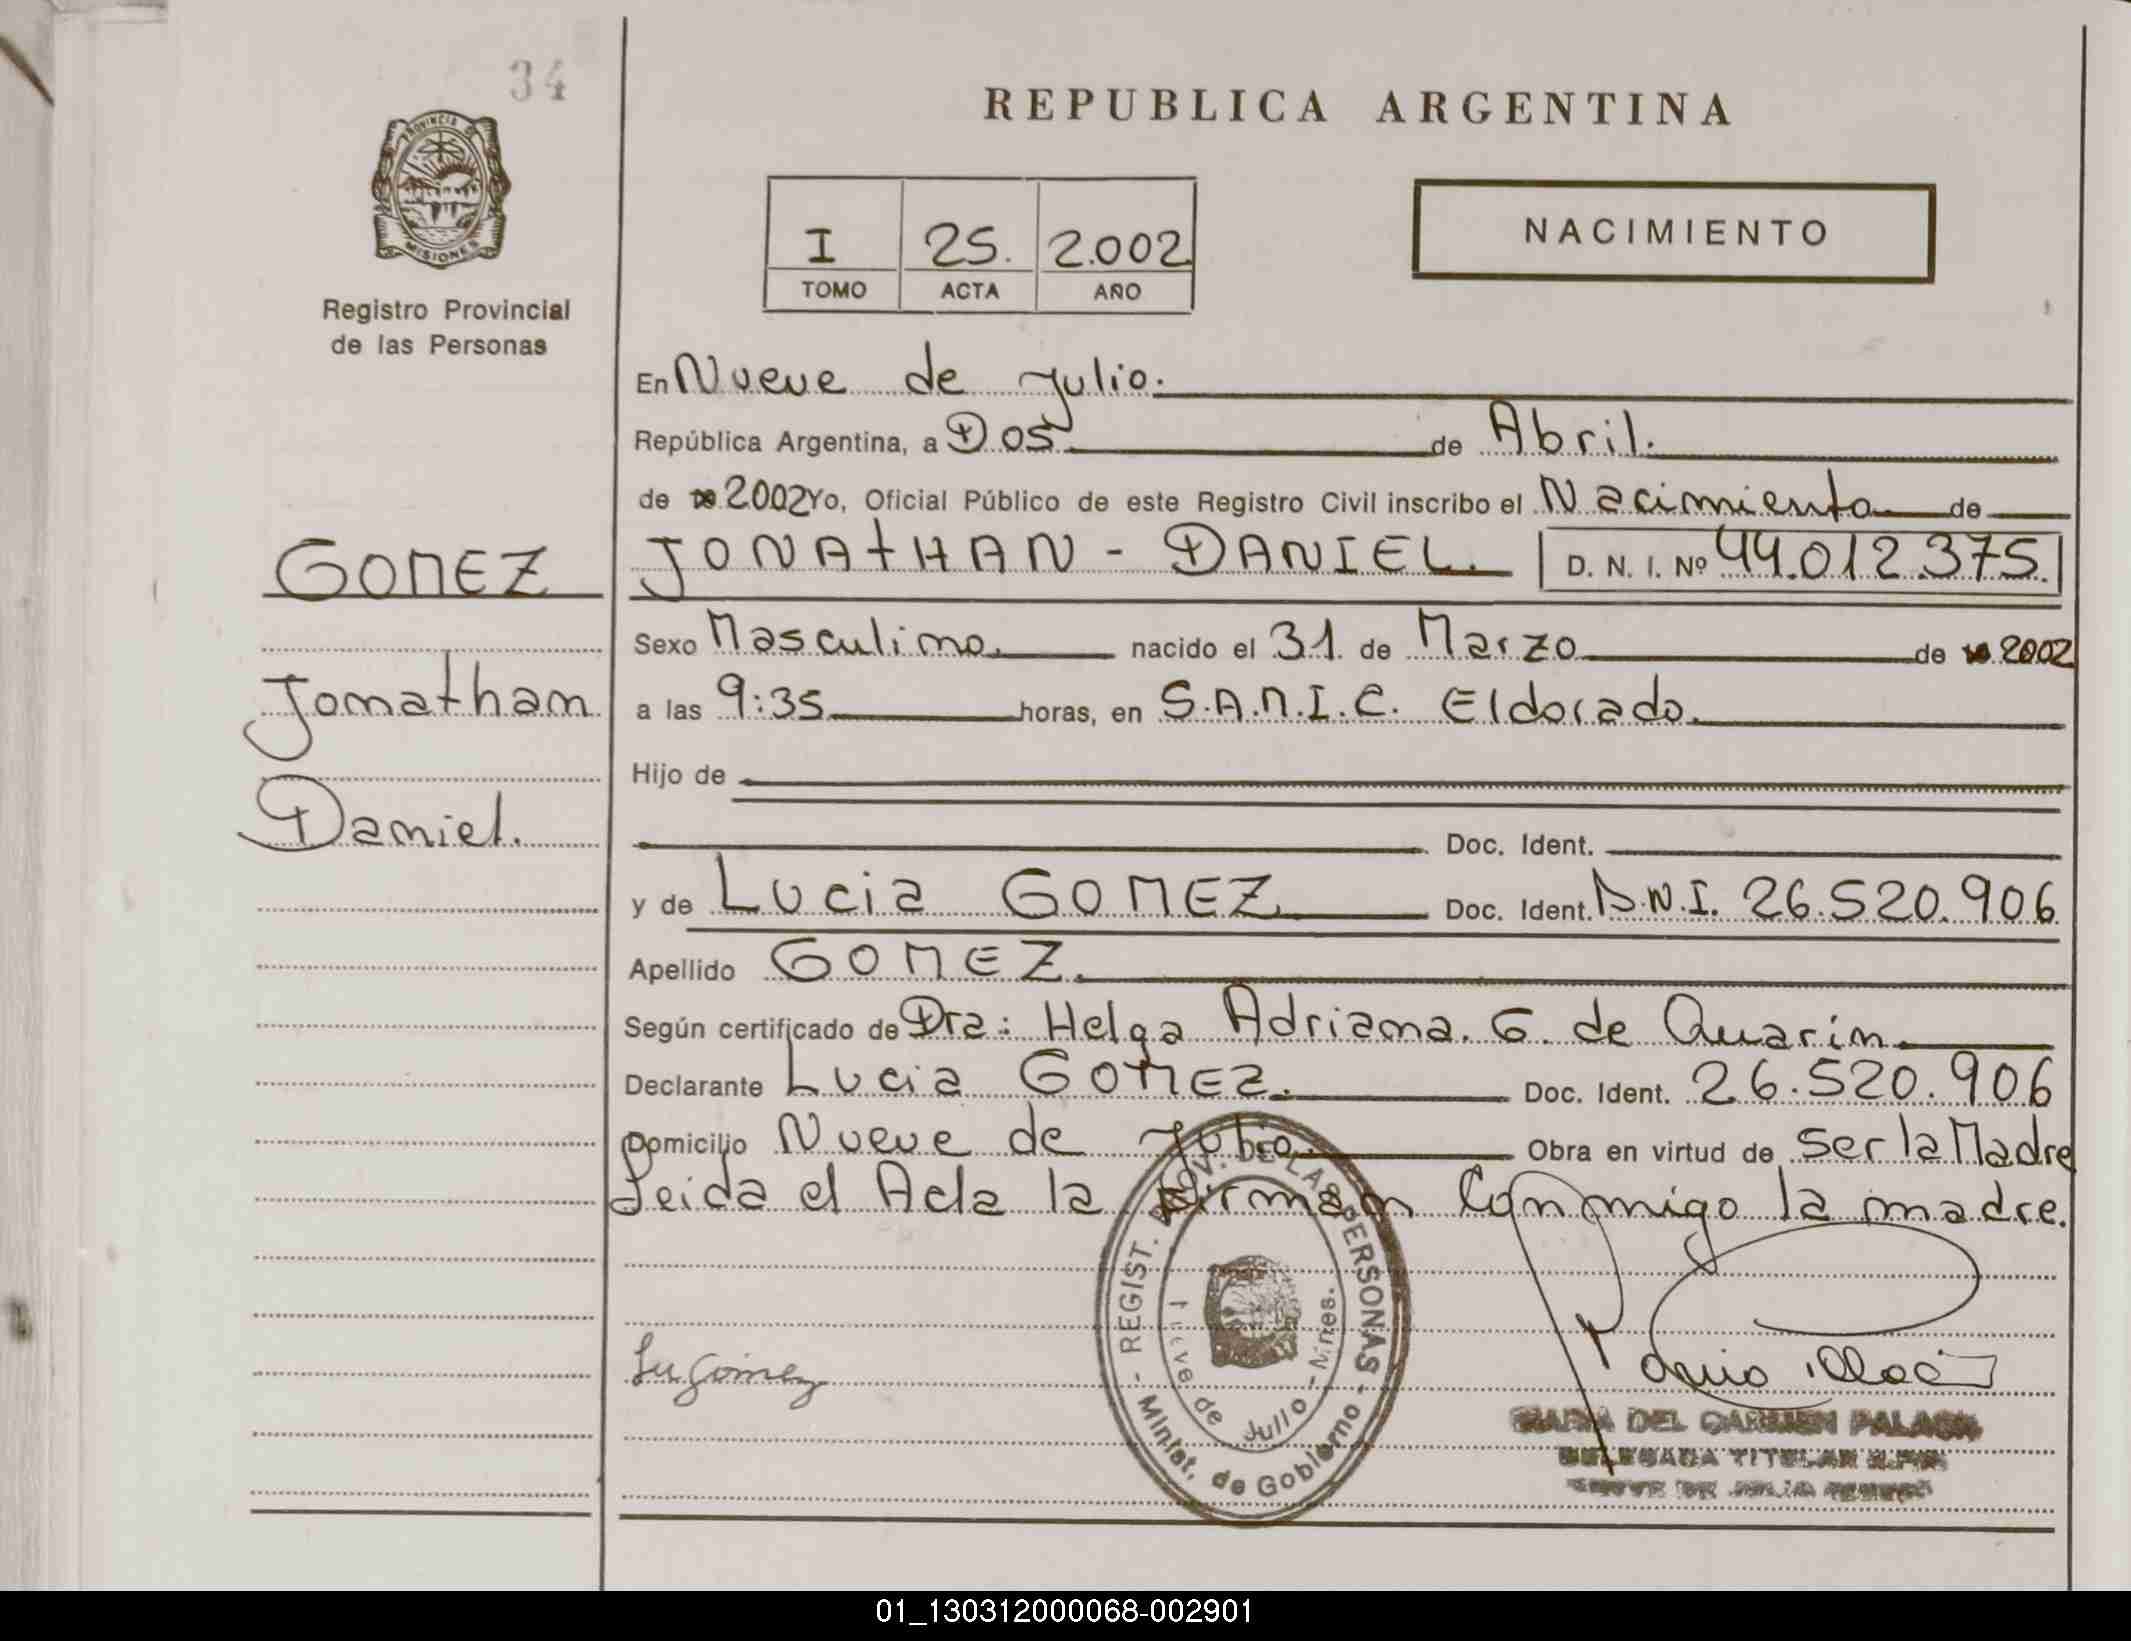 34
REPUBLICA ARGENTINA
PROVINCIA DE MISIONES
Registro Provincial
de las Personas
I 25. 2.002
TOMO ACTA AÑO
NACIMIENTO
En Nueve de Julio.
República Argentina, a Dos de Abril.
de 2002 Yo, Oficial Público de este Registro Civil inscribo el Nacimiento de
GOMEZ
JONATHAN - DANIEL. D. N. I. Nº 44.012.375.
Sexo Masculino. nacido el 31 de Marzo de 2002
Jonathan
a las 9:35 horas, en S.A.M.I.C. Eldorado.
Hijo de
Daniel.
Doc. Ident.
y de Lucia GOMEZ Doc. Ident. D.N.I. 26.520.906
Apellido GOMEZ.
Según certificado de Dra: Helga Adriana. G. de Quarin.
Declarante Lucia GOMEZ. Doc. Ident. 26.520.906
Domicilio Nueve de Julio. Obra en virtud de Ser la Madre
Leida el Acta la firman Conmigo la madre.
REGIST. PROV. DE LAS PERSONAS - Minist. de Gobierno -
Nueve de Julio - Mnes.
Lu Gómez
MARIA DEL CARMEN
DELEGADA TITULAR
NUEVE DE JULIO
01_130312000068-002901